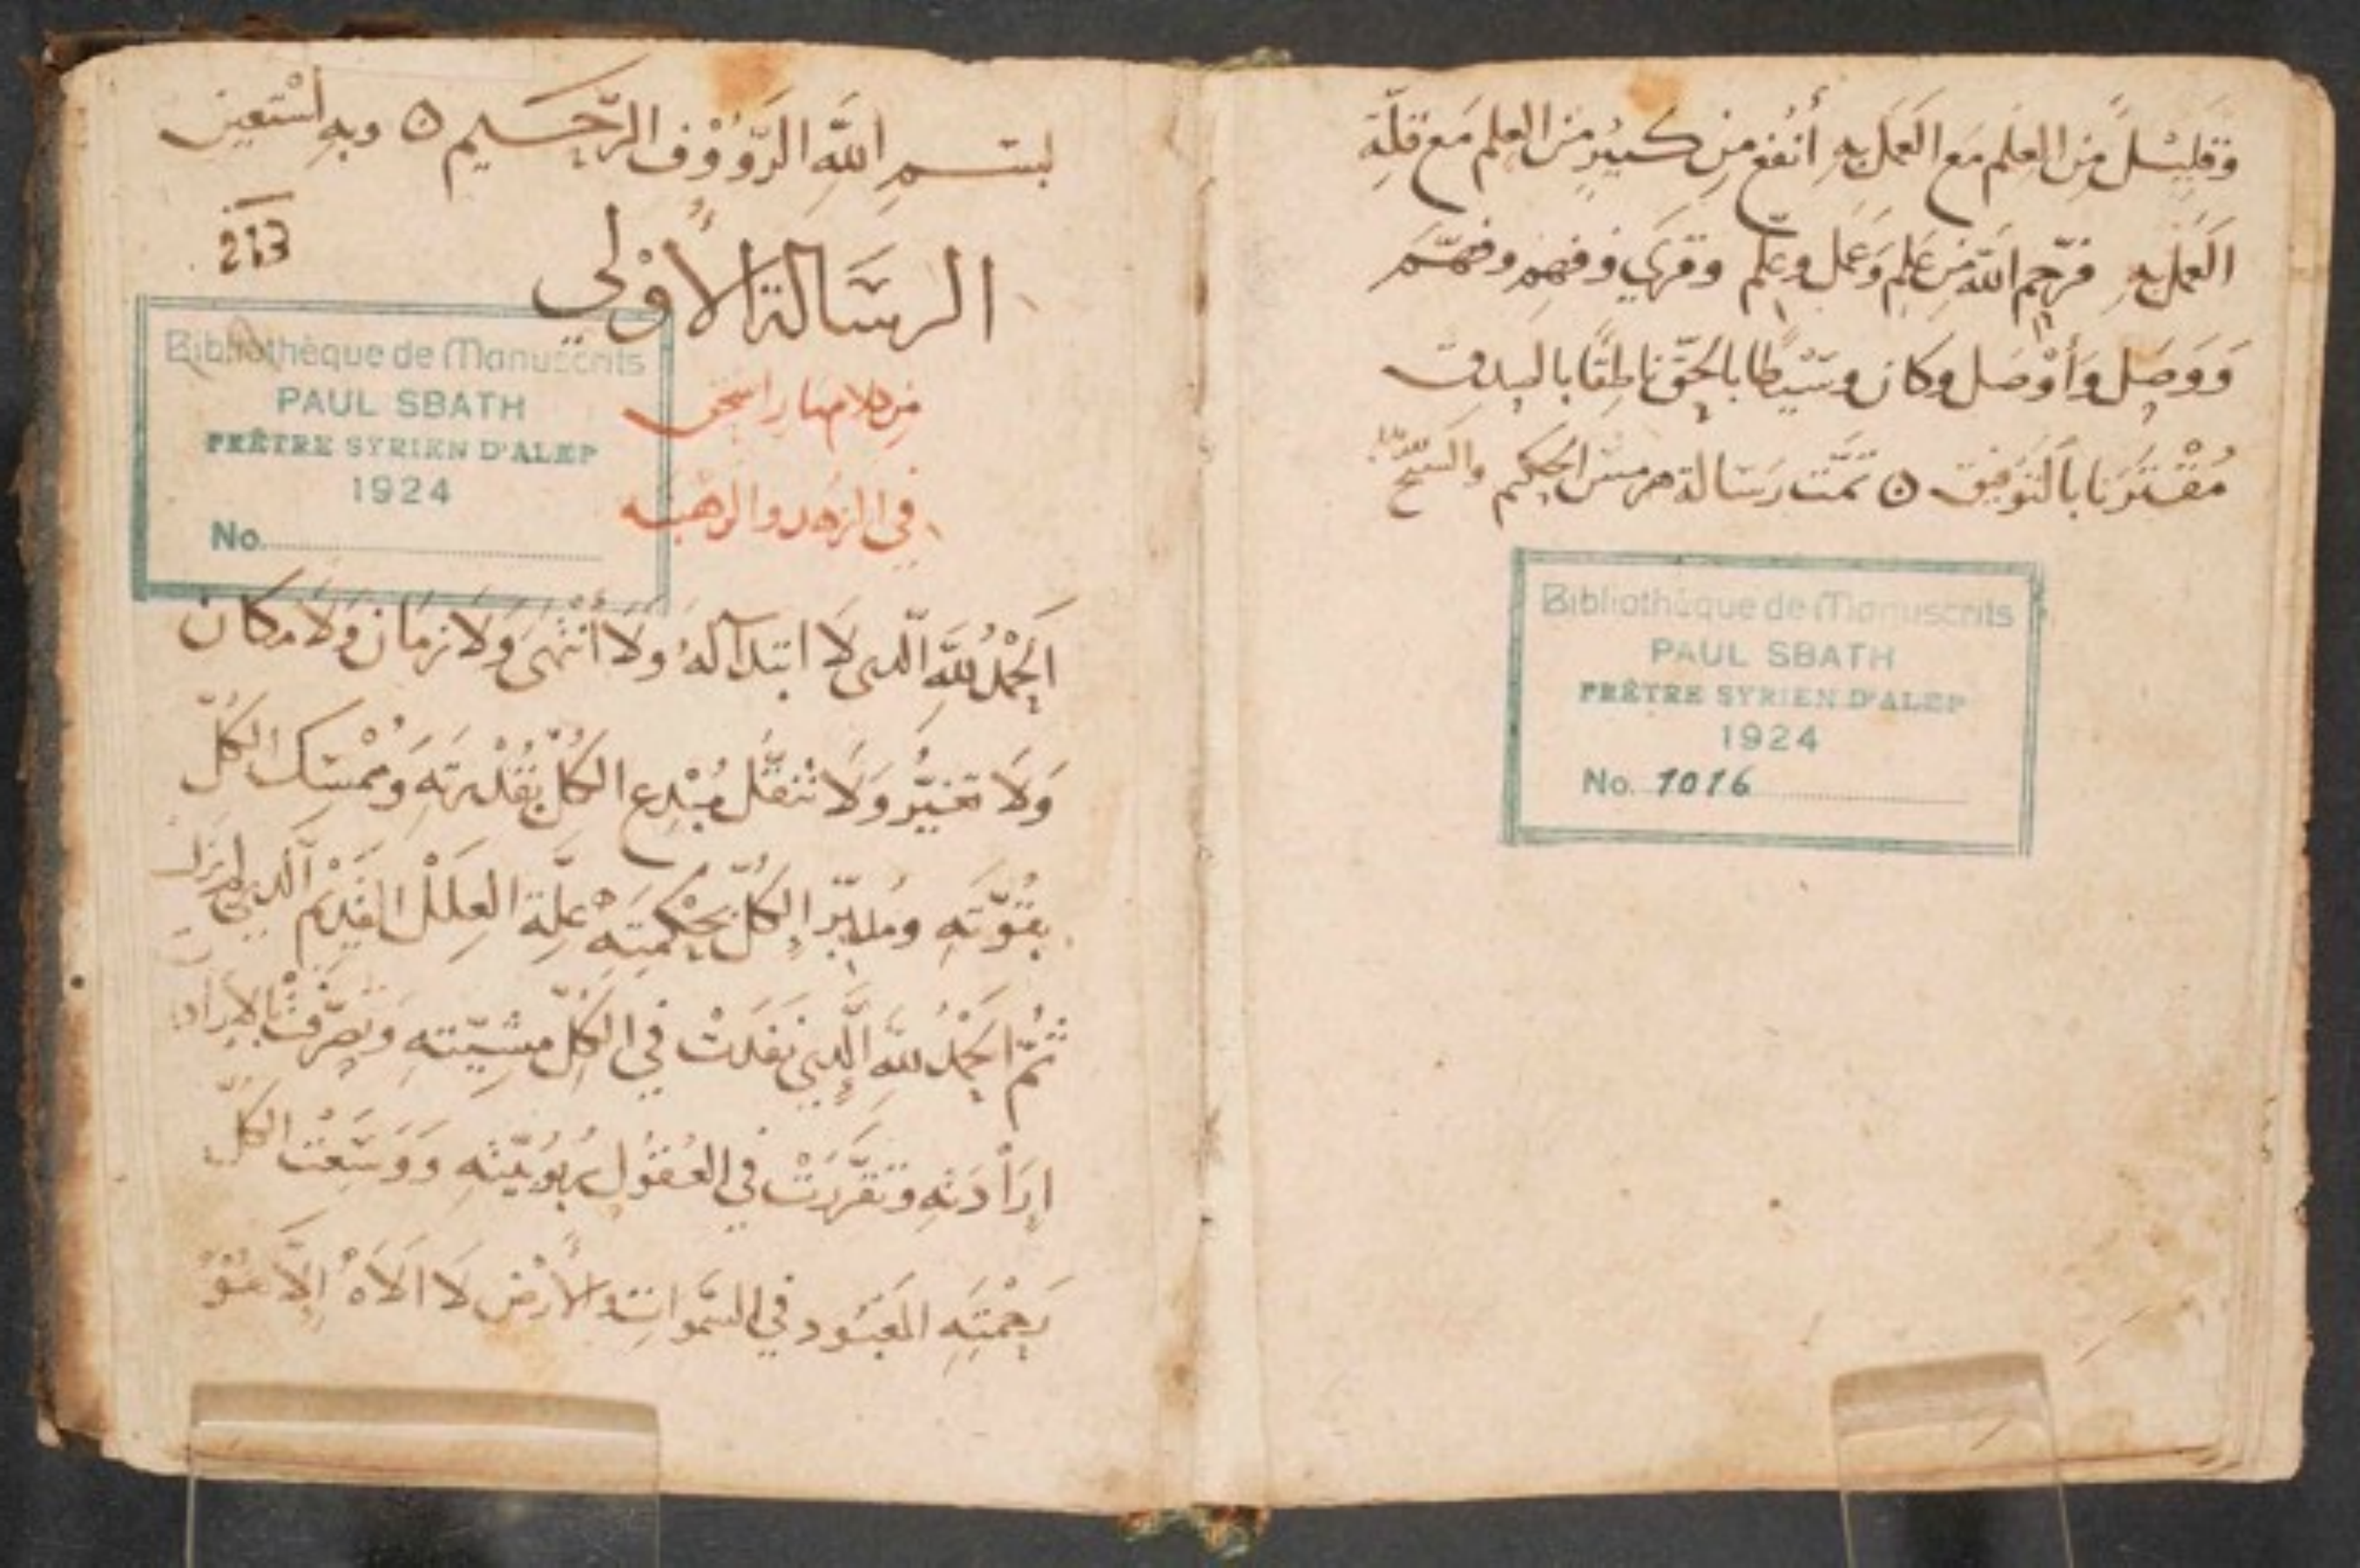 وَقليْلً مِن العِلم مَع العَمَل بهِ أنفع من كبيرٍ من العِلم مَع قلّة
العَمَل بهِ فرَحِم الله مَن عَلِم وَعَمَل وعلم وقري وفهم وفهّم
وَوَصِل وَأوْصَل وكان وسَيْطًا بالحَقّ ناطِقًا بالصدق
مُقْترَنا بالتوَفيق ⵙ تمّت رسَالة هرمس الحكيم والسبح لله
Bibliothèque de Manuscrits
PAUL SBATH
PRÊTRE SYRIEN D'ALEP
1924
No. 1016
بسم الله الرَّوُوْف الرّحيم ⵙ وبهِ اسْتعين
213
الرسَالة الأوْلي
Bibliothèque de Manuscrits
PAUL SBATH
PRÊTRE SYRIEN D'ALEP
1924
No.
من كلام مار اسحق
في الزهد والرهبنه
اَلحَمْدُ للهِ الّدى لَا ابتدآ لهُ وَلَا أنْتهَى وَلَا زمَان وَلَا مكان
وَلَا تغيُّر وَلَا تنقَّل مُبْدِع الكُلّ بقُدْرتهِ وَمُمْسِك الكُلّ
بقُوّتهِ ومُدبّر الكُلّ بحِكْمَتهِ عِلّة العِلَلْ القَدِيْم الّدي لم يزال
ثُمّ الحَمْدُ للهِ الَّدي نفدَتْ في الكُلّ مشيّتهِ وتصَرّفتْ بالايراد
إرَاْدَتهِ وتقرَّرَتْ في العُقوُل ربُوبيّتهِ وَوَسَعَتْ الكُلّ
رَحْمتِهِ المَعْبُود في السَّموات والأرْض لَا الَاهْ إلَّا هُوَ